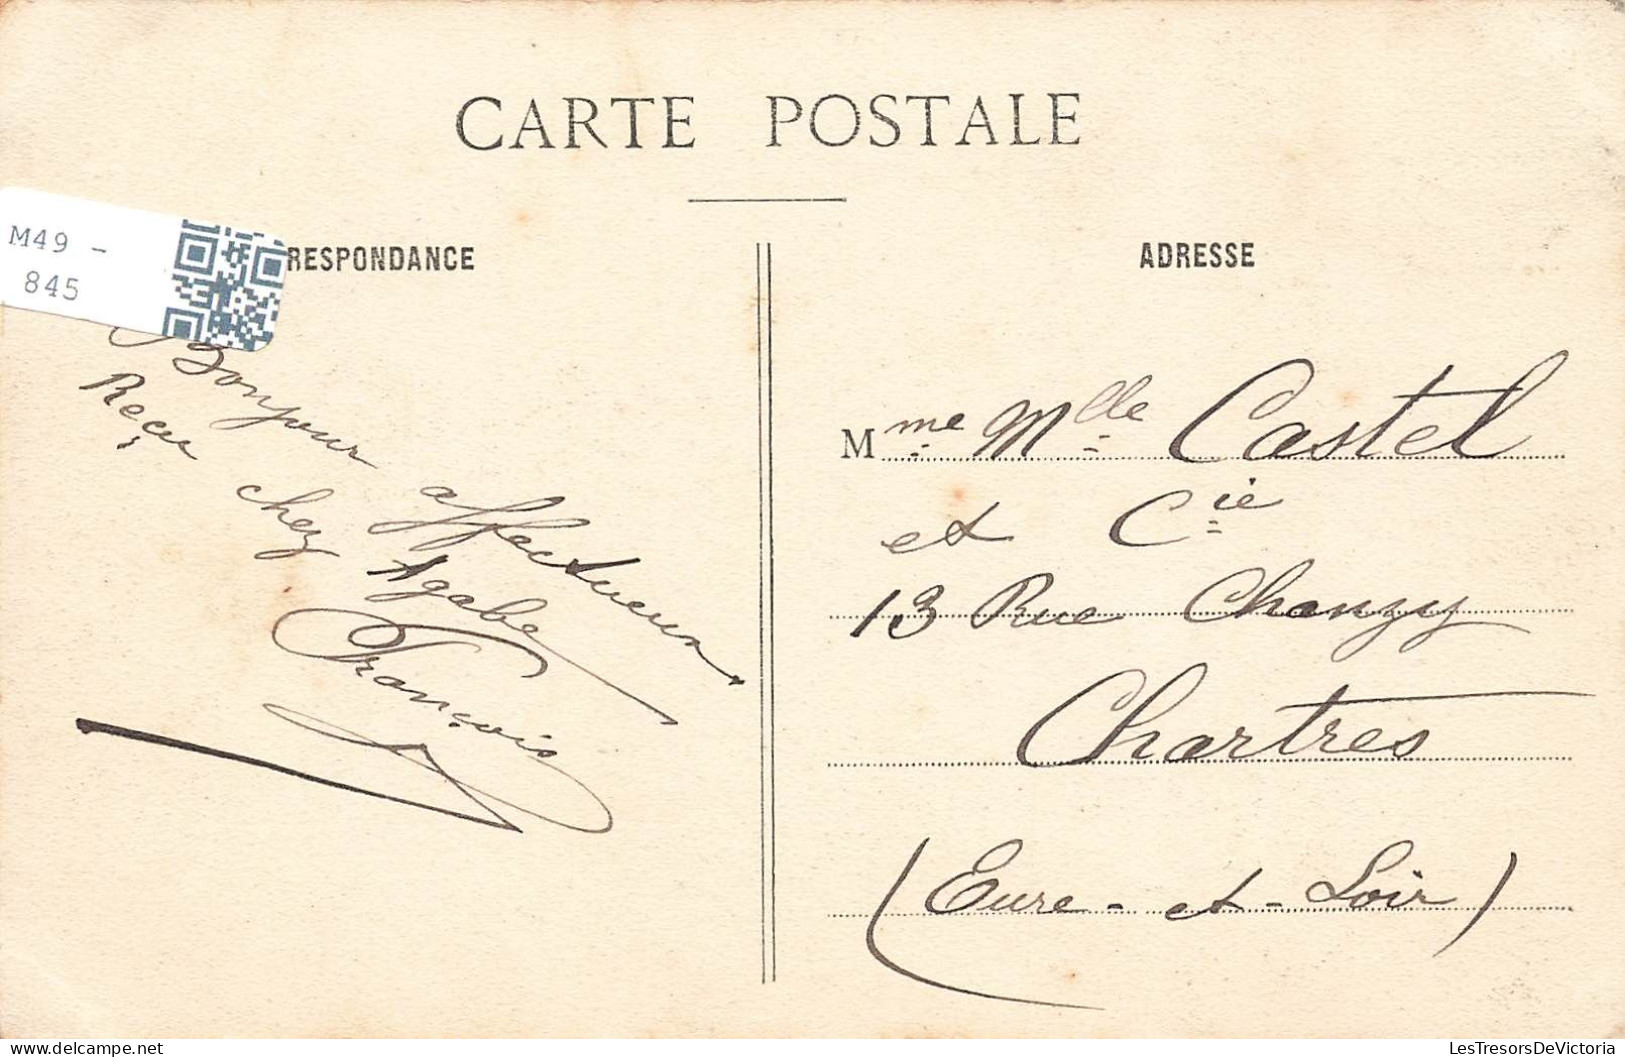 CARTE POSTALE
M49 -
845
RESPONDANCE
Bonjour affectueux
Reçu chez Agabe
François
ADRESSE
Mme Mlle Castel
et Cie
13 Rue Chanzy
Chartres
(Eure-et-Loir)
LesTresorsDeVictoria